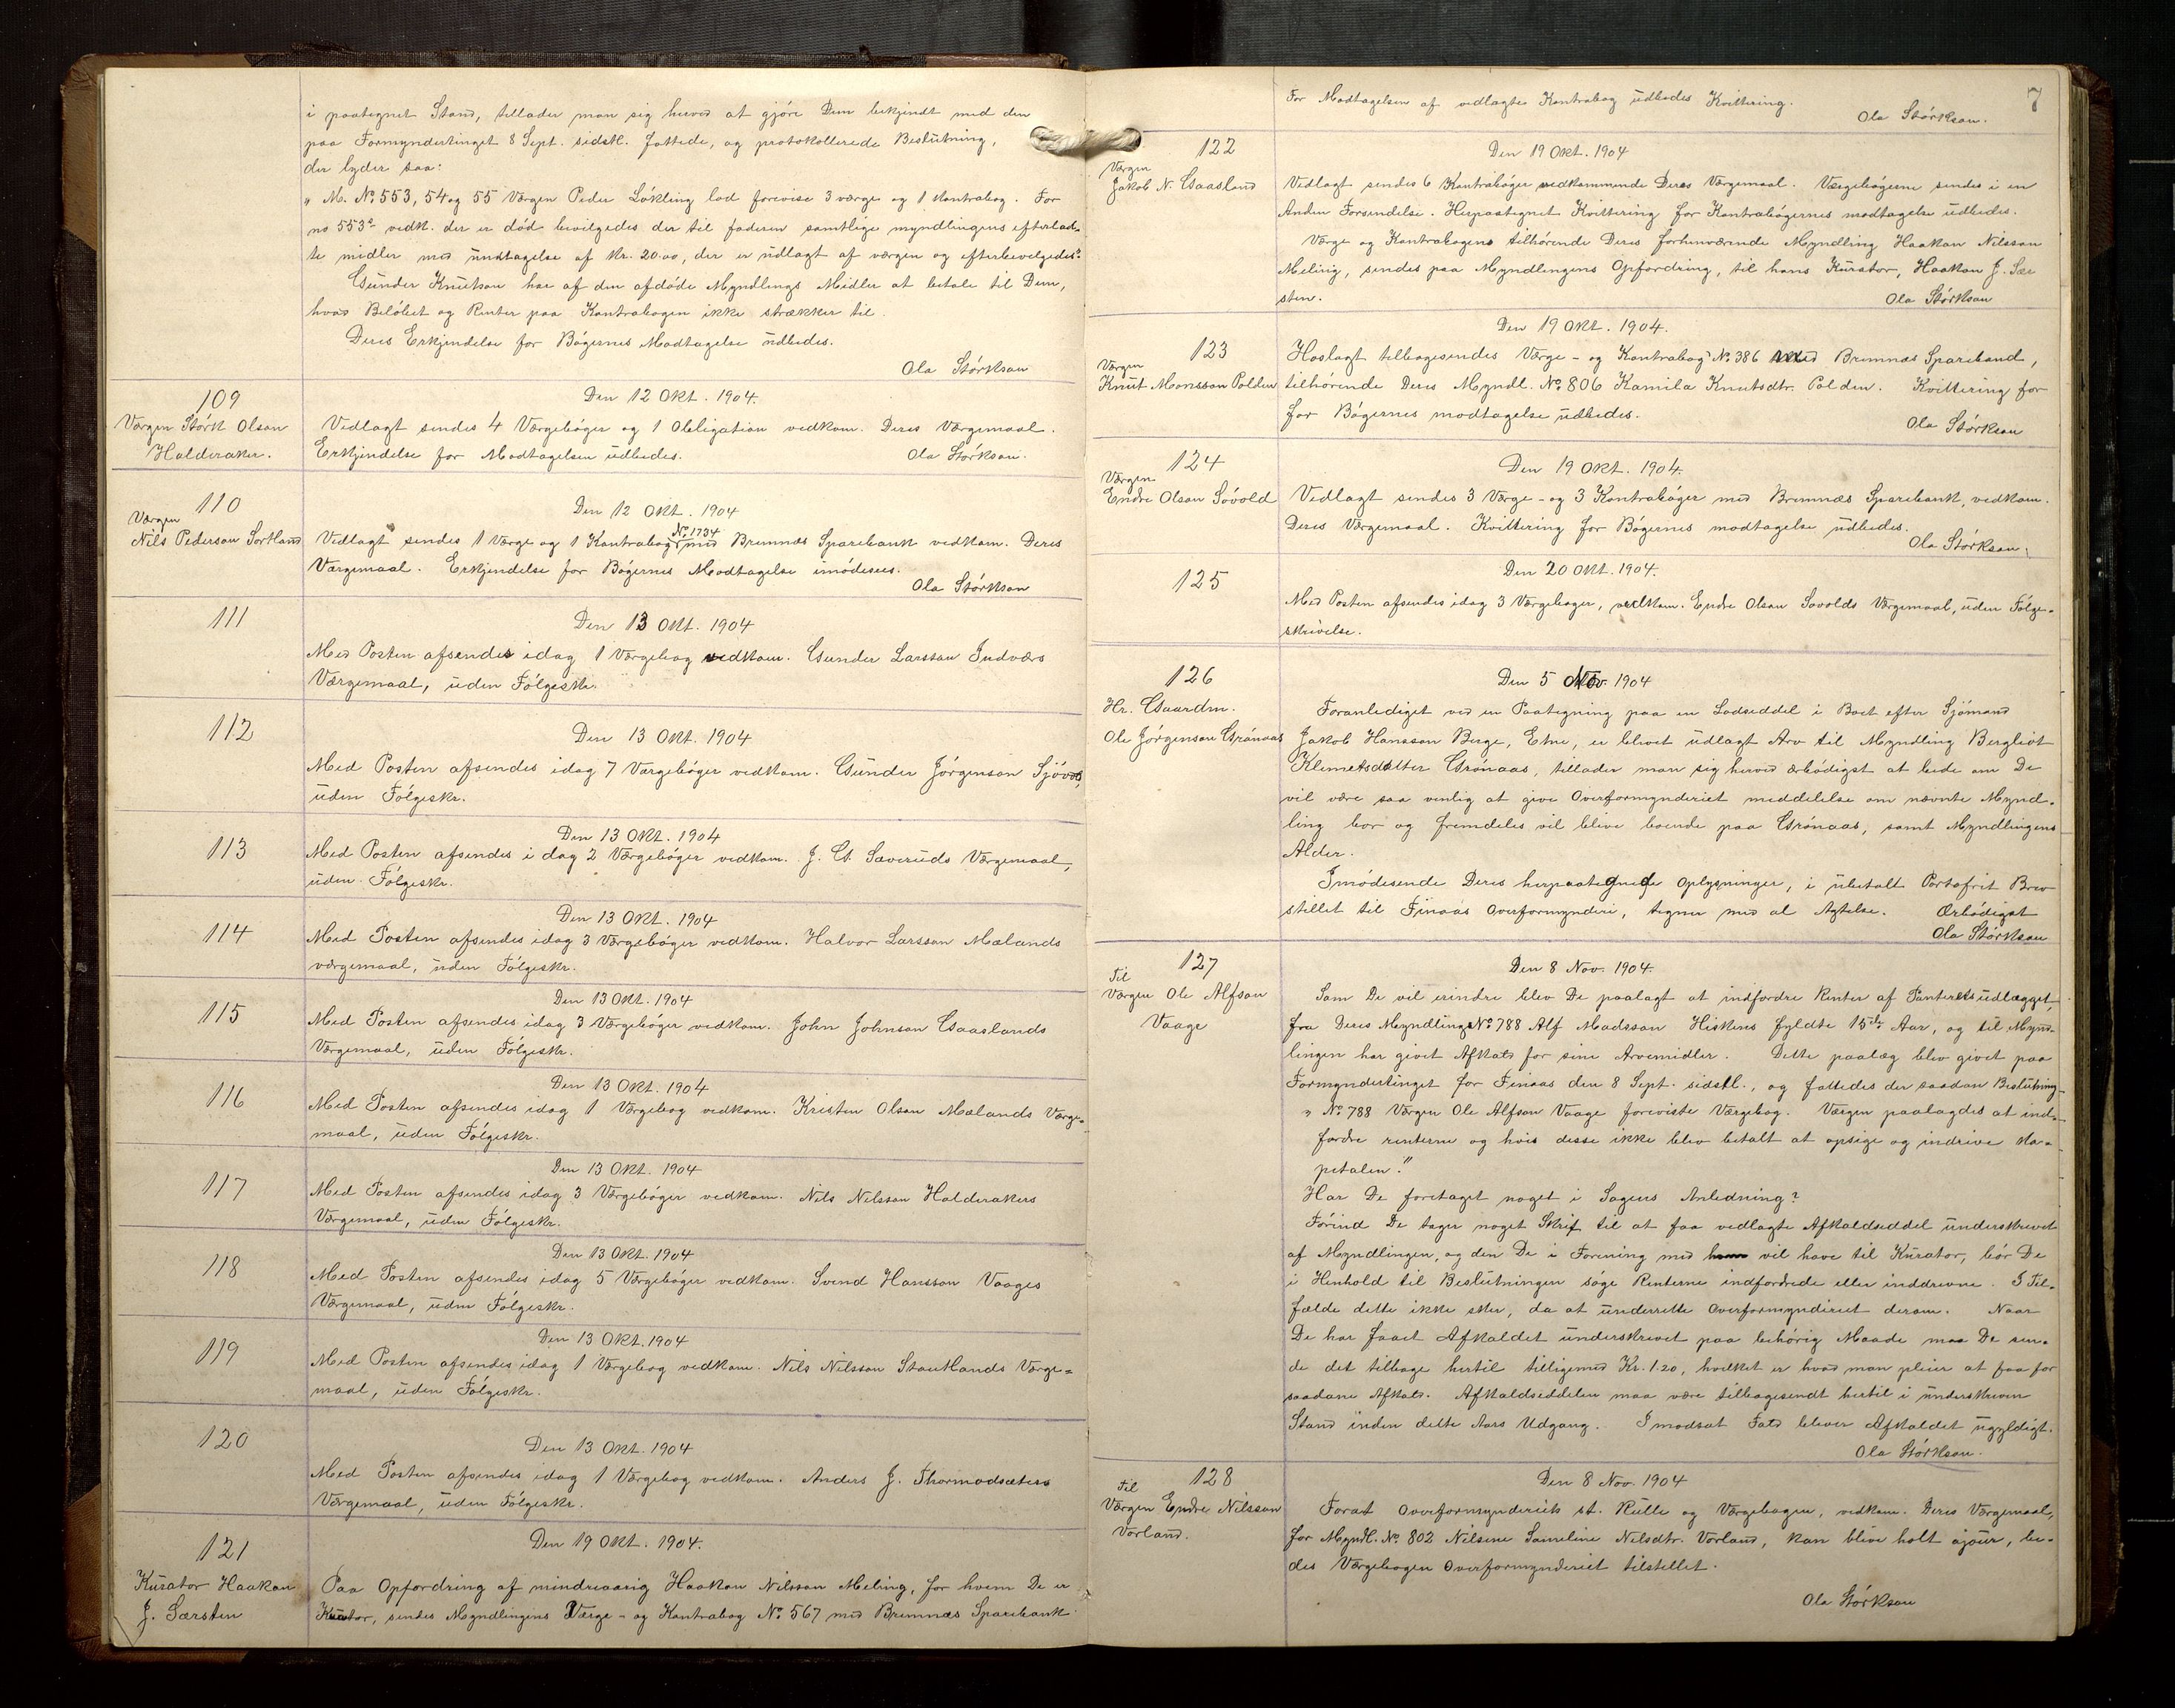 i paategnet Stand, tillader man sig herved at gjöre Dem bekjendt med den
paa Formyndertinget 8 Sept. sidstl. fattede, og protokollerede Beslutning,
der lyder saa:
„M. No 553, 54 og 55 Værgen Peder Lökling lod forevise 3 værge og 1 Kontrabog. For
no 553 vedk. der er död bevilgedes der til faderen samtlige myndlingens efterlad-
te midler med undtagelse af Kr. 20.00, der er udlagt af værgen og efterbevilgedes."
Gunder Knutson har af den afdöde Myndlings Midler at betale til Dem,
hvad Belöbet og Renter paa Kontrabogen ikke strækker til.
Deres Erkjendelse for Bögernes Modtagelse udbedes.
Ola Störkson
109
Værgen Störk Olson
Halderaker.
Den 12 Okt. 1904.
Vedlagt sendes 4 Værgeböger og 1 Obligation vedkom. Deres Værgemaal.
Erkjendelse for Modtagelsen udbedes.
Ola Störkson.
110
Værgen
Nils Pederson Sortland
Den 12 Okt. 1904
Vedlagt sendes 1 Værge og 1 Kontrabog No 1734 med Bremnæs Sparebank vedkom. Deres
Værgemaal. Erkjendelse for Bögernes Modtagelse imödesees.
Ola Störkson
111
Den 13 Okt. 1904
Med Posten afsendes idag 1 Værgebog vedkom. Gunder Larsson Indværs
Værgemaal, uden Fölgeskr.
112
Den 13 Okt. 1904
Med Posten afsendes idag 7 Værgeböger vedkom. Gunder Jörgenson
uden Fölgeskr.
113
Den 13 Okt. 1904
Med Posten afsendes i dag 2 Værgeböger vedkom. J. G. Sæveruds Værgemaal,
uden Fölgeskr.
114
Den 13 Okt. 1904
Med Posten afsendes idag 3 Værgeböger vedkom. Halvor Larsson Mælands
værgemaal, uden Fölgeskr.
115
Den 13 Okt. 1904
Med Posten afsendes idag 3 Værgeböger vedkom. John Johnson Gaaslands
Værgemaal, uden Fölgeskr.
116
Den 13 Okt. 1904
Med Posten afsendes idag 1 Værgebog vedkom. Kristen Olson Mælands Værge-
maal, uden Fölgeskr.
117
Den 13 Okt. 1904
Med Posten afsendes idag 3 Værgeböger vedkom. Nils Nilsson Halderakers
Værgemaal, uden Fölgeskr.
118
Den 13 Okt. 1904
Med Posten afsendes idag 5 Værgeböger vedkom. Svend Hansson Vaages
Værgemaal, uden Fölgeskr.
119
Den 13 Okt. 1904
Med Posten afsendes idag 1 Værgebog vedkom. Nils Nilsson Stautlands Værge=
maal, uden Fölgeskr.
120
Den 13 Okt. 1904
Med Posten afsendes idag 1 Værgebog vedkom. Anders J. Thormodsæters
Værgemaal, uden Fölgeskr.
121
Kurator Haakon
J. Særsten
Den 19 Okt. 1904.
Paa Opfordring af mindreaarig Haakon Nilsson Meling, for hvem De er
Kurator, sendes Myndlingens Værge- og Kontrabog No 567 med Bremnæs Sparebank
7
For Modtagelsen af vedlagte Kontrabog udbedes Kvittering.
Ola Störkson.
122
Værgen
Jakob N. Gaasland
Den 19 Okt. 1904
Vedlagt sendes 6 Kontraböger vedkommende Deres Værgemaal. Værgebögerne sendes i en
Anden Forsendelse. Herpaategnet Kvittering for Kontrabögernes modtagelse udbedes.
Værge og Kontrabogens tilhörende Deres forhenværende Myndling Haakon Nilsson
Meling, sendes paa Myndlingens Opfordring, til hans Kurator, Haakon J. Sær
sten.
Ola Störkson
123
Værgen
Knut Monsson Polden
Den 19 Okt. 1904.
Hoslagt tilbagesendes Værge- og Kontrabog No. 386 med Bremnæs Spareband,
tilhörende Deres Myndl. No. 806 Kamila Knutsdtr. Polden. Kvittering for
for Bögernes modtagelse udbedes.
Ola Störkson
124
Værgen
Endre Olson Sövold
Den 19 Okt. 1904.
Vedlagt sendes 3 Værge- og 3 Kontraböger med Bremnæs Sparebank, vedkom.
Deres Værgemaal. Kvittering for Bögernes modtagelse udbedes.
Ola Störkson.
125
Den 20 Okt. 1904.
Med Posten afsendes idag 3 Værgeboger, vedkom. Endre Olson Sovolds Værgemaal, uden Fölge-
skrivelse.
126
Hr. Gaardm.
Ole Jörgenson Grönaas
Den 5 Nov. 1904
Foranlediget ved en Paategning paa en Lodseddel i Boet efter Sjömand
Jakob Hansson Berge, Etne, er blevet udlagt Arv til Myndling Bergliot
Klemetsdatter Grönaas, tillader man sig herved ærbödigst at bede om De
vil være saa venlig at give Overformynderiet meddelelse om nævnte Mynd-
ling bor og fremdeles vil blive boende paa Grönaas, samt Myndlingens
Alder.
Imödesende Deres herpaategnede Oplysninger, i ubetalt Portofrit Brev
stillet til Finaas Overformynderi, tegner med al Agtelse. Ærbödigst
Ola Störkson
127
Til
Værgen Ole Alfson
Vaage
Den 8 Nov. 1904.
Som De vil erindre blev De paalagt at indfordre Renter af Panteretsudlægget,
fra Deres Myndling No 788 Alf Madsson Hiskens fyldte 15de Aar, og til Mynd-
lingen har givet Afkald for sine Arvemidler. Dette paalæg blev givet paa
Formyndertinget for Finaas den 8 Sept. sidstl., og fattedes der saadan Beslutning-
„No. 788 Værgen Ole Alfson Vaage foreviste Værgebog. Værgen paalagdes at ind-
fordre renterne og hvis desse ikke blev betalt at opsige og indrive ka-
petalen."
Har De foretaget noget i Sagens Anledning?
Förind De tager noget Skrif til at faa vedlagte Afkaldseddel underskrevet
af Myndlingen, og den De i Forening med ham vil have til Kurator, bör De
i Henhold til Beslutningen söge Renterne indfordrede eller inddrevne. I Til-
fælde dette ikke sker, da at underrette Overformynderiet derom. Naar
De har faaet Afkaldet underskrevet paa behörig Maade maa De sen-
de det tilbage hertil tilligemed Kr. 1.20, hvilket er hvad man pleier at faa for
saadane Afkald. Afkaldseddelen maa være tilbagesendt hertil i underskreven
Stand inden dette Aars Udgang. I modsat Fald bliver Afkaldet ugyldigt.
Ola Störkson.
128
Til
Værgen Endre Nilsson
Vorland.
Den 8 Nov. 1904
Forat Overformynderiets st. Rulle og Værgebogen, vedkom. Deres Værgemaal,
for Myndl. No. 802 Nilsine Sameline Nilsdtr. Vorland, kan blive holt ajour, be-
des Værgebogen Overformynderiet tilstellet.
Ola Störkson